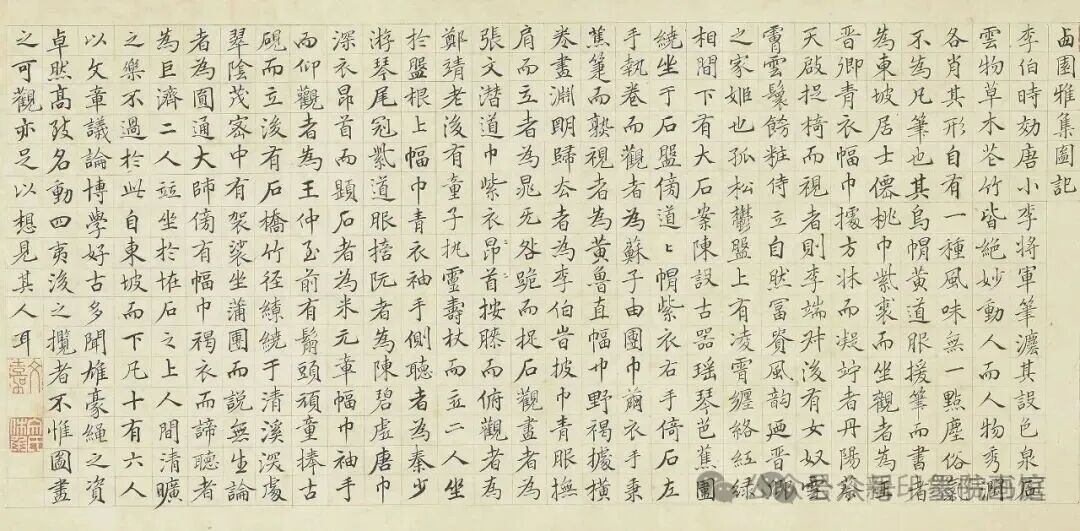 卥園雅集圖記
李伯時効唐小李將軍筆灋其設色泉石
雲物草木花竹皆絕妙動人而人物秀潤
各肖其形自有一種風味無一點塵俗氣
不為凡筆也其烏帽黃道服援筆而書者
為東坡居士僊桃巾紫裘而坐觀者為王
晉卿青衣幅巾據方牀而凝竚者丹陽蔡
天啟捉椅而視者則李端叔後有女奴雲
霄雲鬟餙粧侍立自然富貴風韻廼晉卿
之家姬也孤松鬱盤上有凌霄纏絡紅綠
相間下有大石案陳設古器瑶琴芭蕉圍
繞坐于石盤傍道〻帽紫衣右手倚石左
手執卷而觀者為蘇子由團巾繭衣手秉
蕉箑而熟視者為黃魯直幅巾野褐據橫
卷畫淵明歸去者為李伯時披巾青服撫
肩而立者為晁无咎跪而捉石觀畫者為
張文潜道巾紫衣昂首按膝而俯觀者為
鄭靖老後有童子執靈壽杖而立二人坐
於盤根上幅巾青衣袖手側聽者為秦少
游琴尾冠紫道服搯阮者為陳碧虛唐巾
深衣昂首而題石者為米元章幅巾袖手
而仰觀者為王仲至前有鬅頭頑童捧古
硯而立後有石橋竹徑繚繞于清溪深處
翠陰茂密中有袈裟坐蒲團而說無生論
者為圓通大師傍有幅巾褐衣而諦聽者
為巨濟二人竝坐於怪石之上人間清曠
之樂不過於此自東坡而下凡十有六人
以文章議論博學好古多聞雄豪繩之資
卓然髙致名動四夷後之攬者不惟圖畫
之可觀亦足以想見其人耳